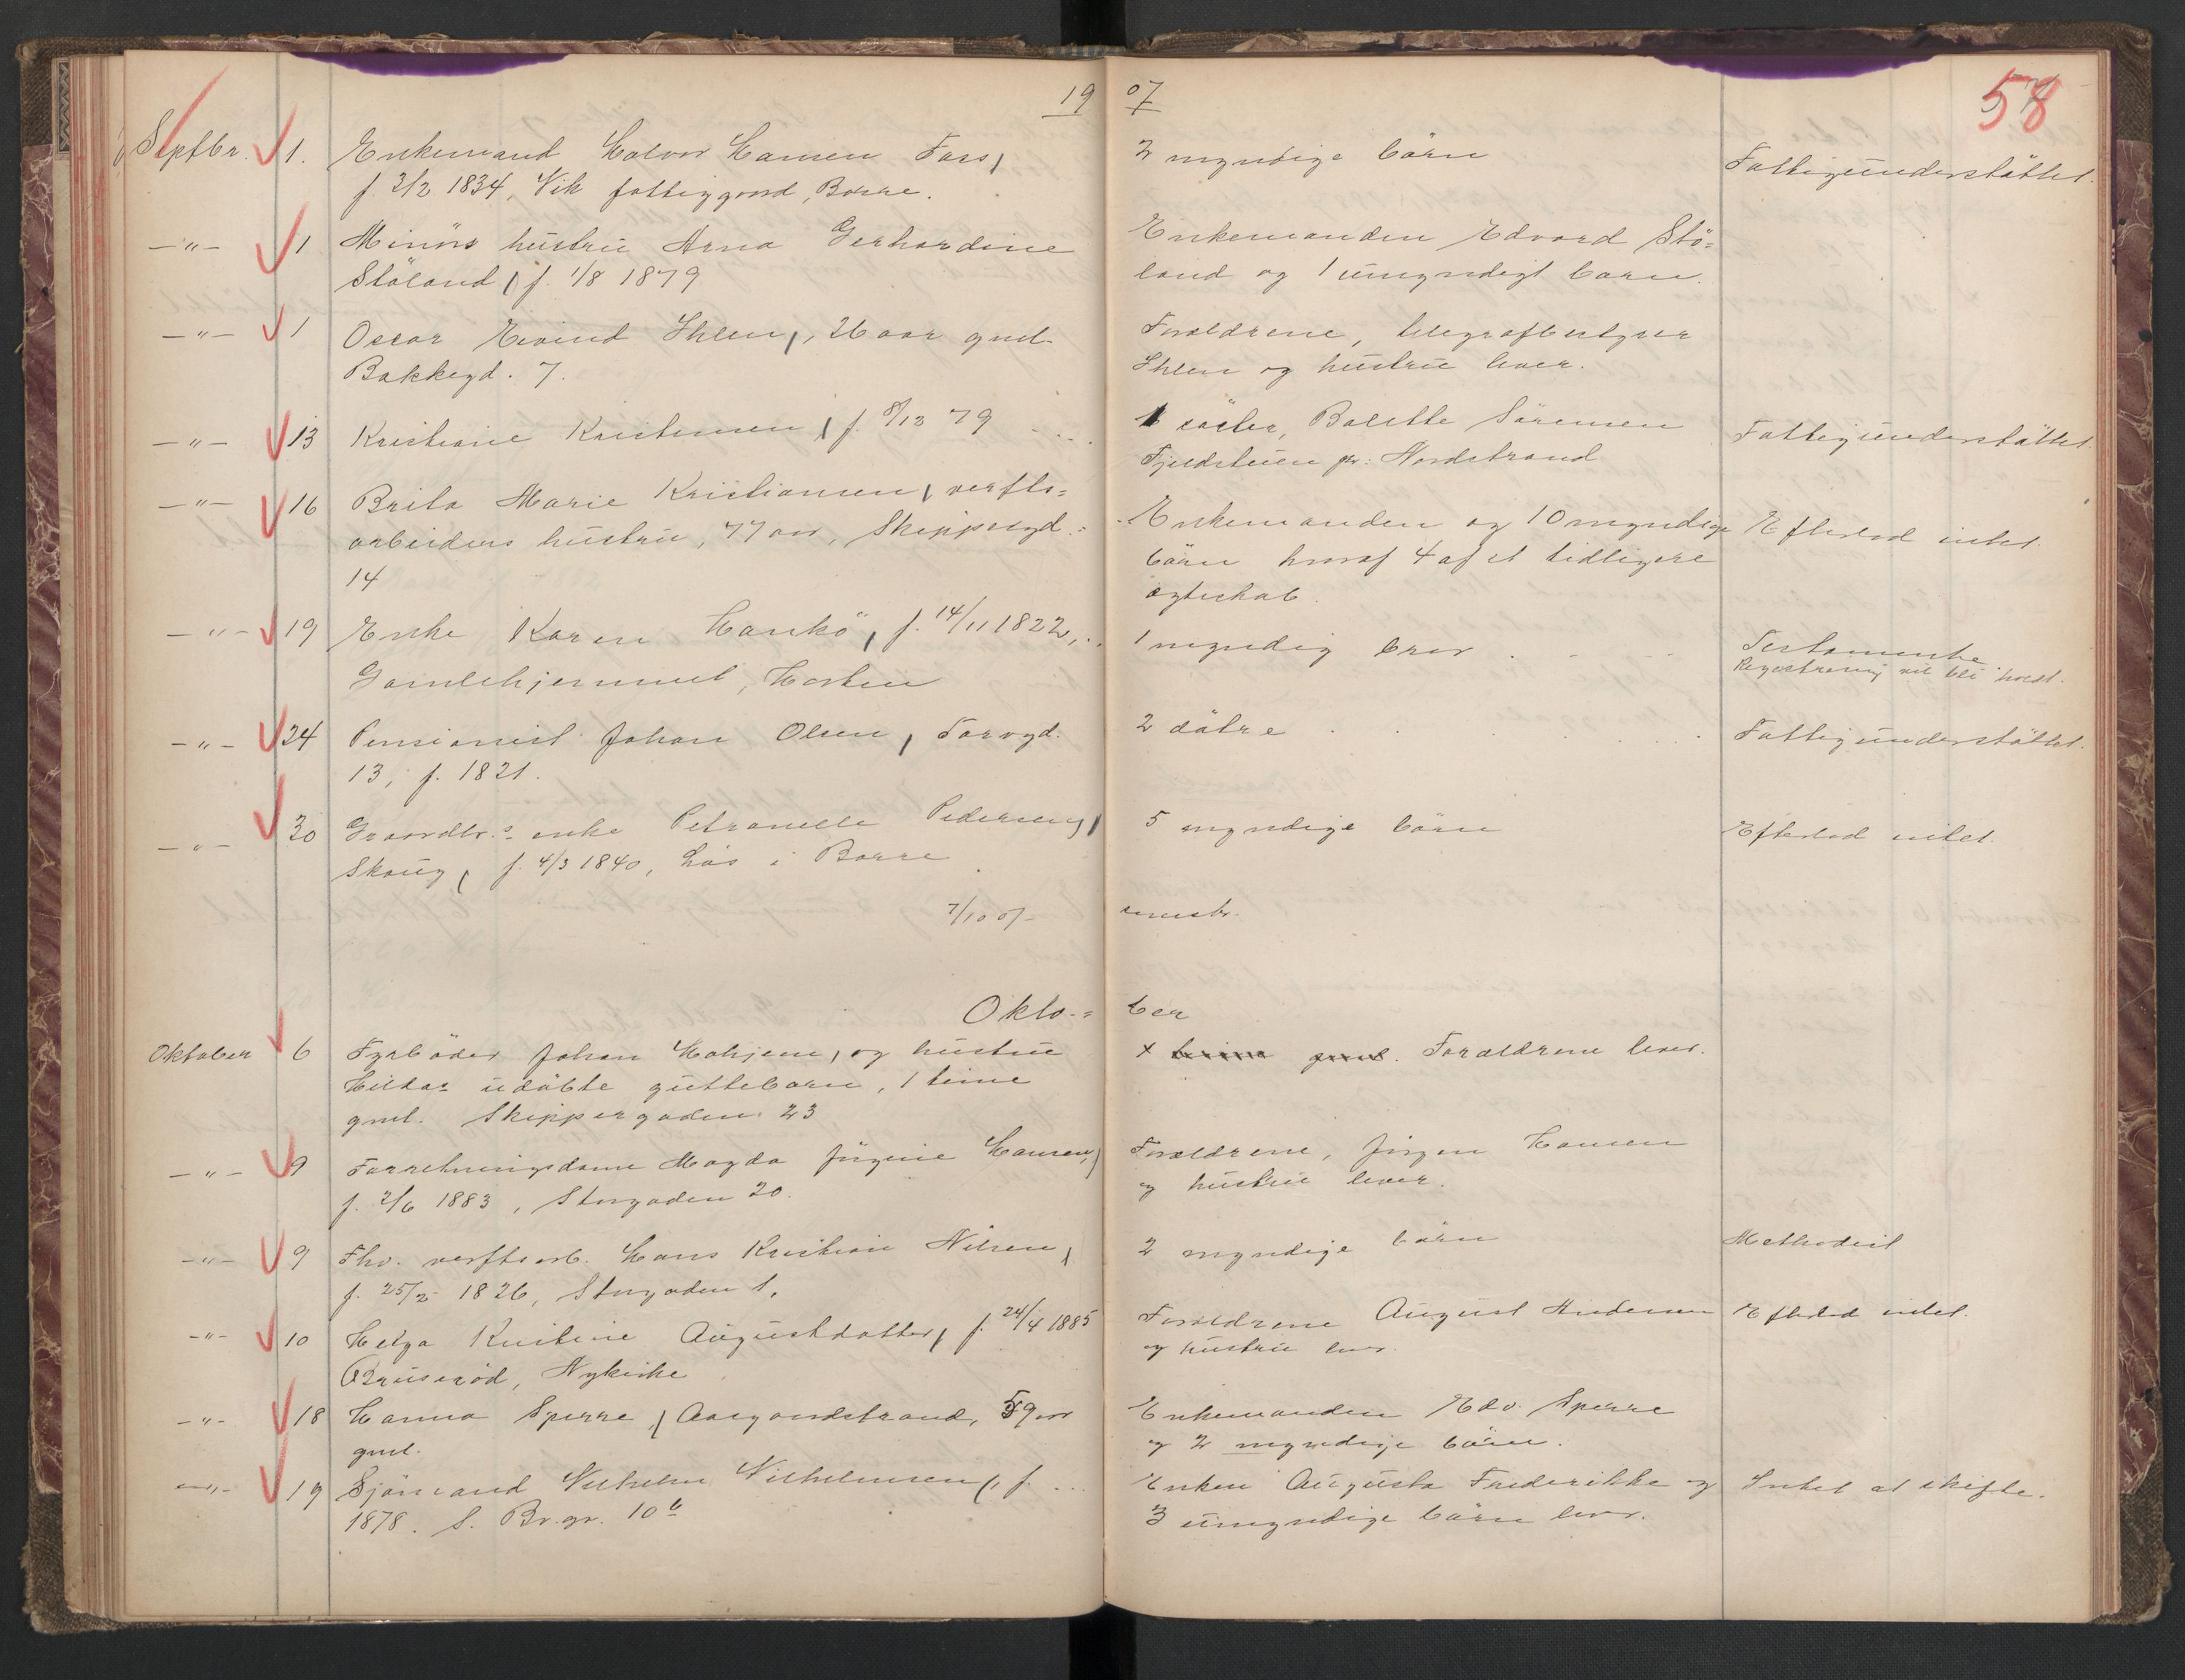 1907
58
Septbr. 1. Enkemand Halvor Hansen Foss, 2 myndige börn Fattigunderstöttet.
f. 3/2 1834, Vik fattiggaard, Borre.
-"- 1 Minörs hustru Anna Gerhardine Enkemanden Edvard Stö=
Stöland, f. 1/8 1879 land og 1 umyndigt barn.
-"- 1 Oscar Eivind Ihlen, 26 aar gml. Forældrene, telegrafbestyrer
Bakkegd. 7. Ihlen og hustru lever.
-"- 13 Kristiane Kristensen, f. 8/13 79 1 söster, Bolette Sörensen Fattigunderstöttet.
Fjeldstuen pr. Nordstrand
-"- 16 Brita Marie Kristiansen, verfts= Enkemanden og 10 myndige Efterlod intet.
arbeiders hustru, 77 aar, Skippergd. börn hvoraf 4 af et tidligere
14 ægteskab.
-"- 19 Enke Karen Hankö, f. 14/11 1822, 1 myndig bror Testamente
Gamlehjemmet, Horten Registrering vil bli holdt.
-"- 24 Pensionist Johan Olsen, Torvgd. 2 dötre Fattigunderstöttet.
13, f. 1821.
-"- 30 Gaardbr.s enke Petronelle Pedersen, 5 myndige börn Efterlod intet.
Skoug, f. 4/3 1840, Lös i Borre
7/10 07-
Okto-=ber
Oktober 6 Fyrböder Johan Hohjem, og hustru x time gml. Forældrene lever.
Hildas udöbte guttebarn, 1 time
gml. Skippergaden 23
-"- 9 Forretningsdame Magda Jörgine Hansen, Forældrene, Jörgen Hansen
f. 2/6 1883, Storgaden 20. og hustru lever.
-"- 9 Fhv. verftsarb. Hans Kristian Nilsen, 2 myndige börn Methodist
f. 25/2 1826, Storgaden 1.
-"- 10 Helga Kristine Augustdatter, f. 24/4 1885 Forældrene August Andersen Efterlod intet.
Bruseröd, Nykirke og hustru lever.
-"- 18 Hanna Sperre, Aasgaardstrand, 59 aar Enkemanden Edv. Sperre
gml. og 2 myndige börn.
-"- 19 Sjömand Vilhelm Vilhelmsen, f. Enken Augusta Frederikke og Intet at skifte.
1878. S. Br.gr. 10b 3 umyndige börn lever.